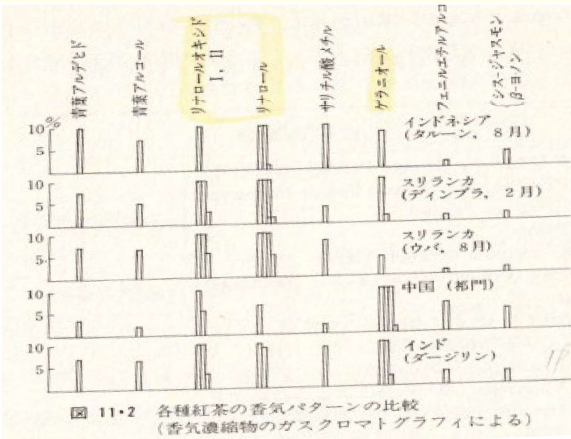 青葉アルデヒド
青葉アルコール
リナロールオキシド
I, II
リナロール
サリチル酸メチル
ゲラニオール
フェニルエチルアルコ
シス-ジャスモン
β-ヨノン
%
10
5
インドネシア
(タルーン, 8月)
10
5
スリランカ
(ディンブラ, 2月)
10
5
スリランカ
(ウバ, 8月)
10
5
中国 (祁門)
10
5
インド
(ダージリン)
図 11・2 各種紅茶の香気パターンの比較
(香気濃縮物のガスクロマトグラフィによる)